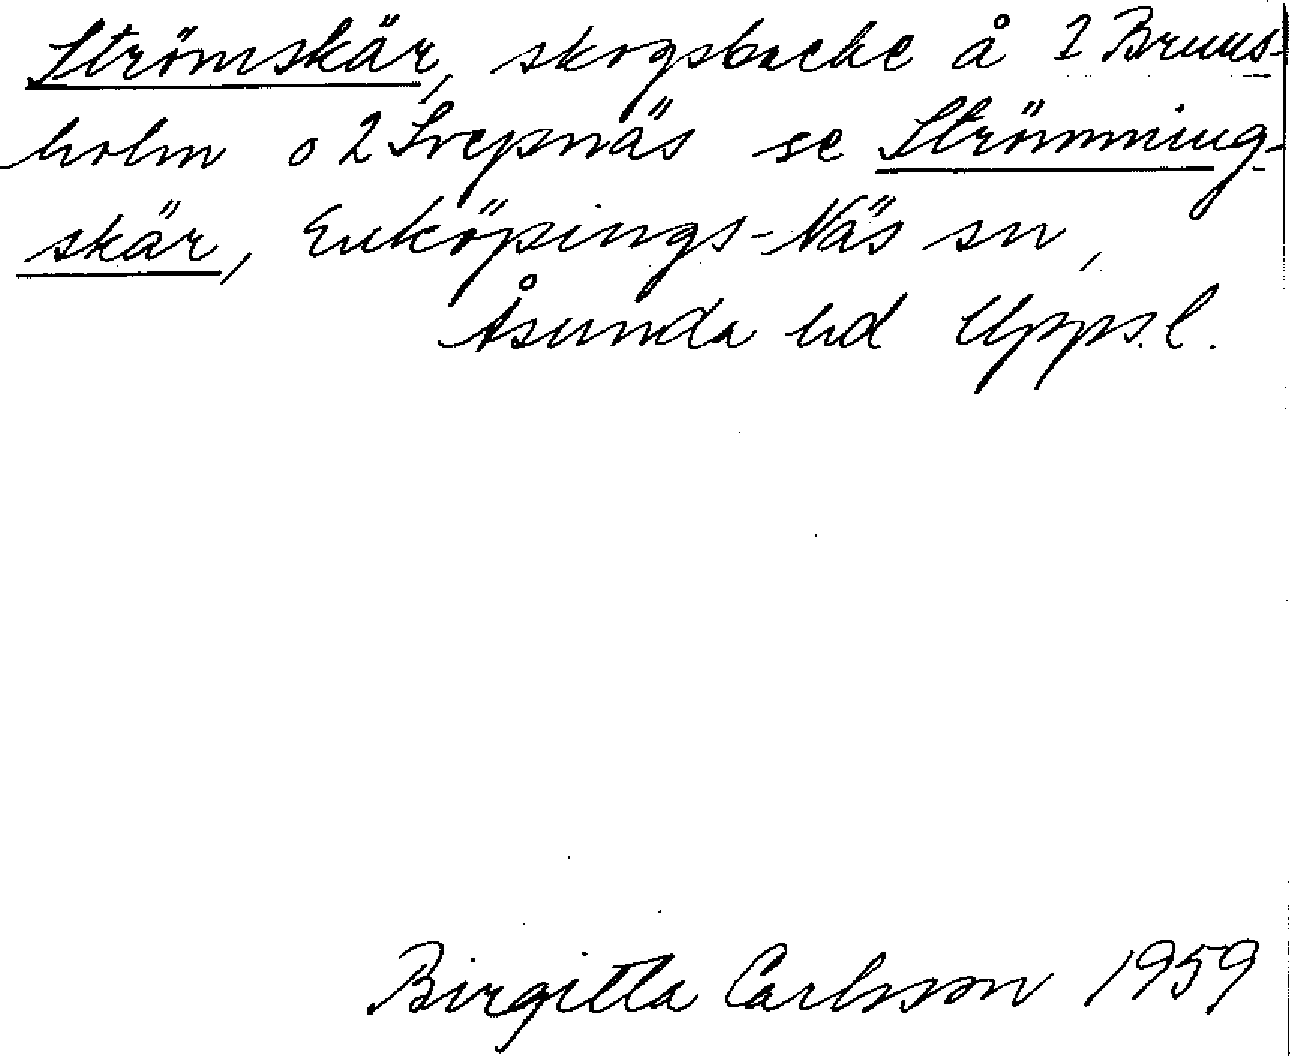 Strömskär, skogsbacke å 2 Bruns-
holm o 2 Svepnäs se Strömming-
skär, Enköpings-Näs sn,
Åsunda hd Upps.l.
Birgitta Carlsson 1959